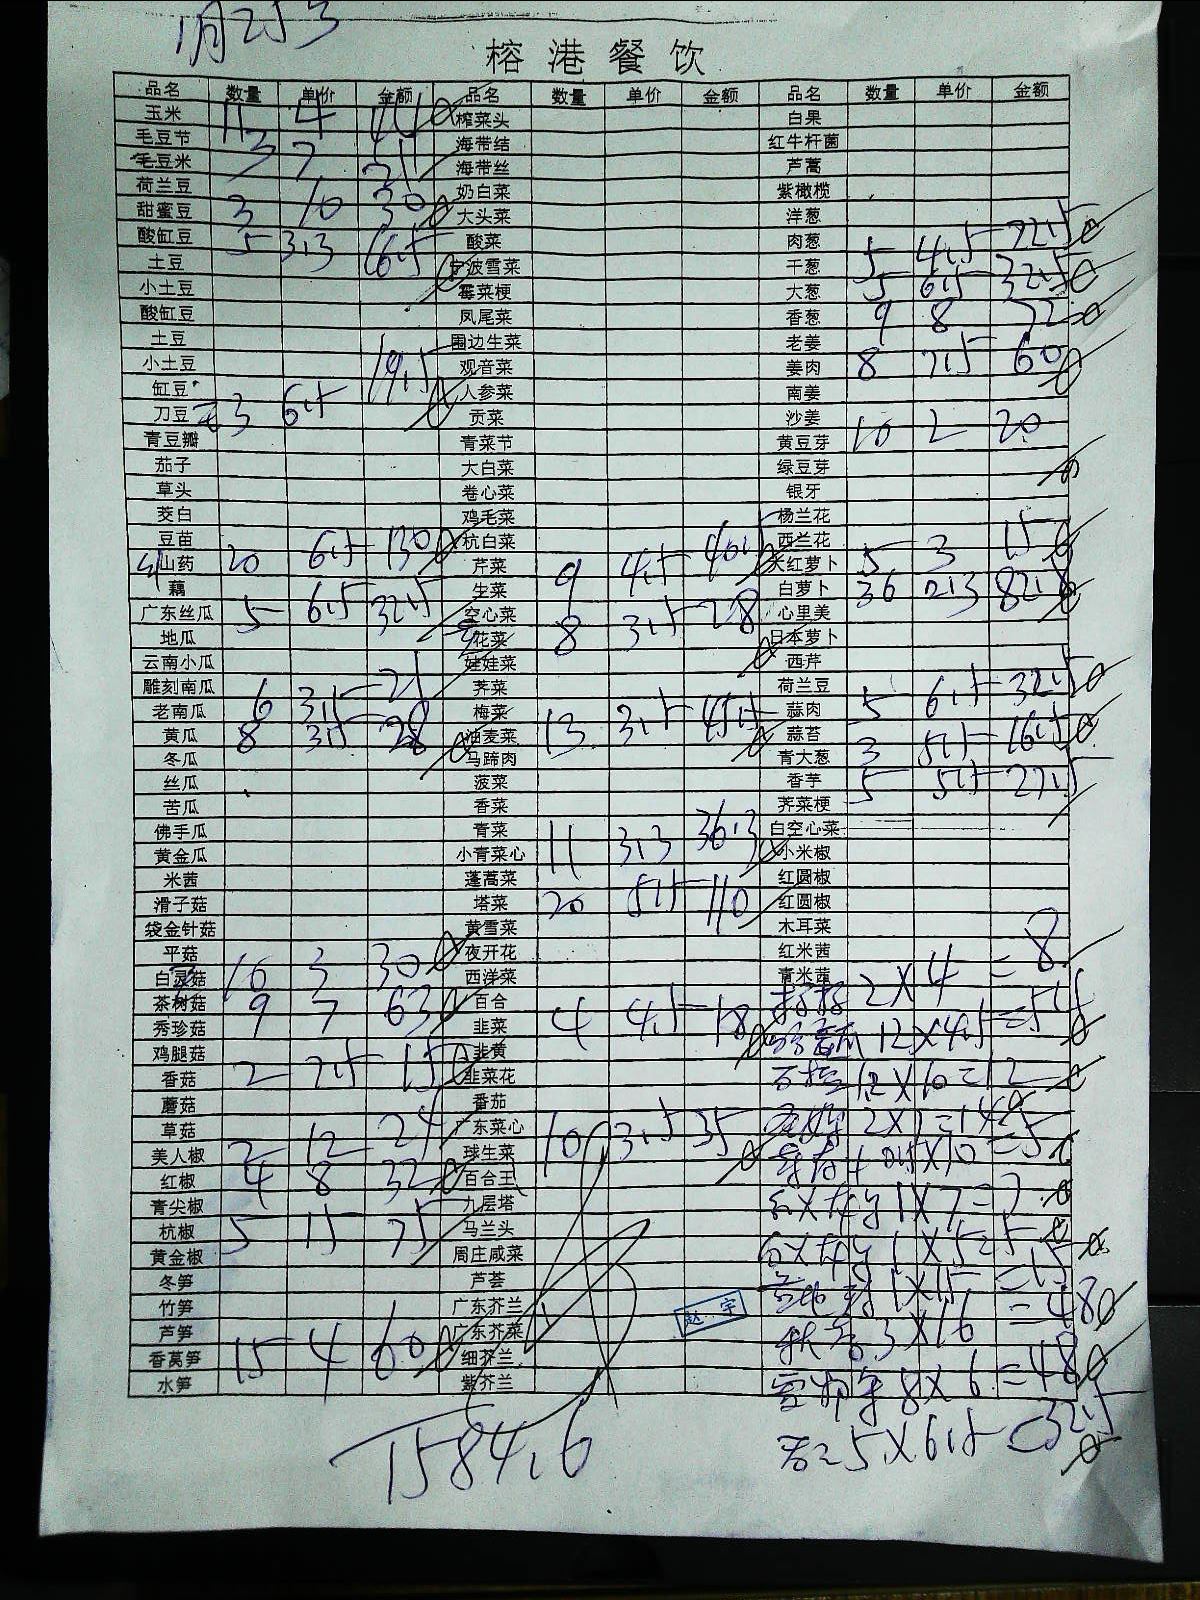 1月25号
榕港餐饮
品名 数量 单价 金额 品名 数量 单价 金额 品名 数量 单价 金额
玉米 11 4 44 榨菜头 白果
毛豆节 3 7 21 海带结 红牛杆菌
毛豆米 海带丝 芦蒿
荷兰豆 3 10 30 奶白菜 紫橄榄
甜蜜豆 5 3.3 16.5 大头菜 洋葱
酸缸豆 酸菜 肉葱 5 4.5 22.5
土豆 宁波雪菜 干葱 5 6.5 32.5
小土豆 霉菜梗 大葱 9 8 72
酸缸豆 凤尾菜 香葱
土豆 围边生菜 老姜 8 7.5 60
小土豆 观音菜 姜肉
缸豆 3 6.5 19.5 人参菜 南姜
刀豆 贡菜 沙姜 10 2 20
青豆瓣 青菜节 黄豆芽
茄子 大白菜 绿豆芽
草头 卷心菜 银牙
茭白 鸡毛菜 杨兰花
豆苗 杭白菜 西兰花 5 3 15
山药 20 6.5 130 芹菜 9 4.5 40.5 大红萝卜
藕 生菜 白萝卜 36 2.3 82.8
广东丝瓜 5 6.5 32.5 空心菜 8 3.5 28 心里美
地瓜 花菜 日本萝卜
云南小瓜 娃娃菜 西芹
雕刻南瓜 荠菜 荷兰豆 5 6.5 32.5
老南瓜 6 3.5 21 梅菜 13 3.5 45.5 蒜肉
黄瓜 8 3.5 28 油麦菜 蒜苔 3 5.5 16.5
冬瓜 马蹄肉 青大葱
丝瓜 菠菜 香芋 5 5.5 27.5
苦瓜 香菜 荠菜梗
佛手瓜 青菜 11 3.3 36.3 白空心菜
黄金瓜 小青菜心 小米椒
米茜 蓬蒿菜 红圆椒
滑子菇 塔菜 20 5.5 110 红圆椒
袋金针菇 黄雪菜 木耳菜
平菇 夜开花 红米茜
白灵菇 10 3 30 西洋菜 青米茜
茶树菇 9 7 63 百合 4 4.5 18 2×4=8
秀珍菇 韭菜 12×4.5=54
鸡腿菇 韭黄
香菇 2 7.5 15 韭菜花 12×10=12
蘑菇 番茄
草菇 广东菜心 10 3.5 35 2×7=14
美人椒 2 12 24 球生菜 ×10=5
红椒 4 8 32 百合王
青尖椒 九层塔 1×7=7
杭椒 5 15 75 马兰头
黄金椒 周庄咸菜 1×5=5
冬笋 芦荟 1×15=15
竹笋 广东芥兰
芦笋 广东芥菜 3×16=48
香莴笋 15 4 60 细芥兰
水笋 紫芥兰 8×6=48
5×6.5=32.5
1584.6